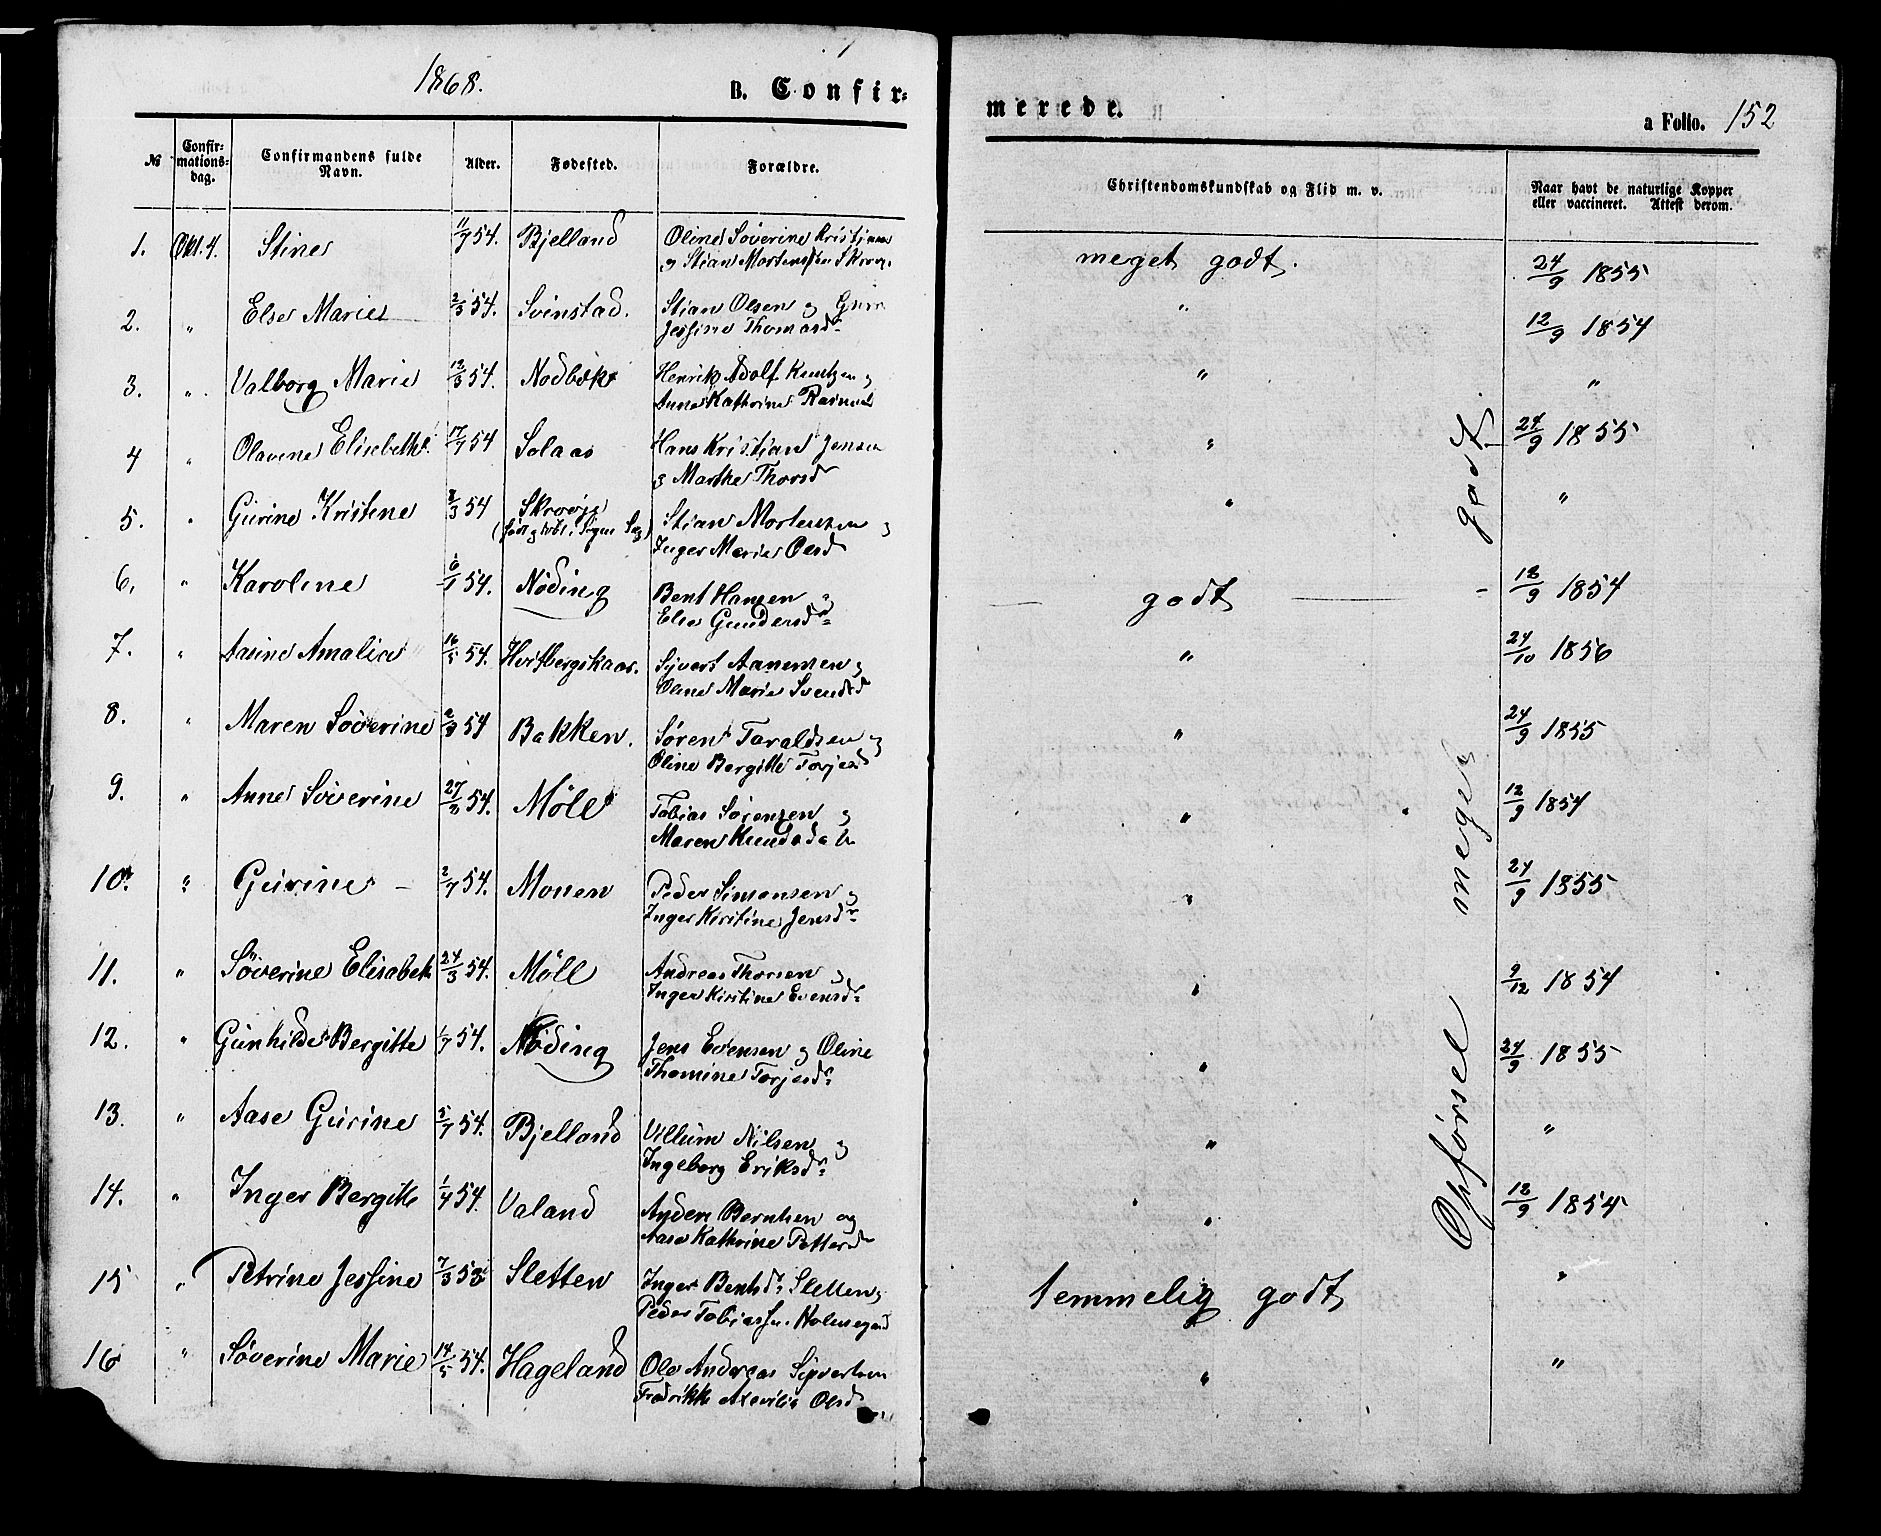 1868.
B. Confir-
merede.
a Folio. 152
№
Confir-
mations-
dag.
Confirmandens fulde
Navn.
Alder.
Fødested.
Forældre.
Christendomskundskab og Flid m. v.
Naar havt de naturlige Kopper
eller vaccineret. Attest derom.
1. Okt. 4. Stine 11/7 54. Bjelland Oline Søverine Kristians
og Stian Mortensen
meget godt. 24/9 1855
2. " Else Marie 2/3 54. Svinstad. Stian Olsen og
Jessine Thomasd.
" 12/9 1854
3. " Valborg Marie 12/3 54. Henrik Adolf Knutzen og
Anne Kathrine
" "
4 " Olavine Elisebeth 17/7 54 Solaas Hans Kristian Jensen
og Marthe Thorsd
" 24/9 1855
5. " Gurine Kristine 8/3 54 Stian Mortensen og
Inger Marie Olsd
" "
6. " Karoline 6/1 54. Nøding Bent Hansen og
Else Gundersd.
godt 12/9 1854
7. " Aasine Amalia 16/5 54. Sjvert Aanensen og
Oline Marie Svendsd
" 24/10 1856
8. " Maren Søverine 2/3 54 Bakken. Søren Taraldsen og
Oline Bergitte Torjesd
" 24/9 1855
9. " Anne Søverine 27/3 54. Møll Tobias Sørensen og
Maren
" 12/9 1854
10. " Gurine - 2/7 54. Monen Peder Simonsen og
Inger Kirstine Jensdr
" 24/9 1855
11. " Søverine Elisabet 24/3 54. Møll Andreas Thorsen og
Inger Kirstine Evensd.
" 9/12 1854
12. " Gunhilde Bergitte 1/7 54. Nøding Jens Evensen og Oline
Thomine Torjesd.
" 24/9 1855
13. " Aase Gurine 5/7 54. Bjelland Villum Nilsen og
Ingeborg Eriksd.
" "
14. " Inger Bergitte 1/7 54. Valand Anders Berntsen og
Aase Kathrine Pettersd
" 12/9 1854
15 " Petrine Jessine 7/3 53 Sletten Inger Bentsd. Sletten,
Peder Tobiassen
temmelig godt "
16 " Søverine Marie 14/5 54. Hageland Ole Andreas Syvertsen
Fredrikke Olsd
" "
Opførsel meget godt